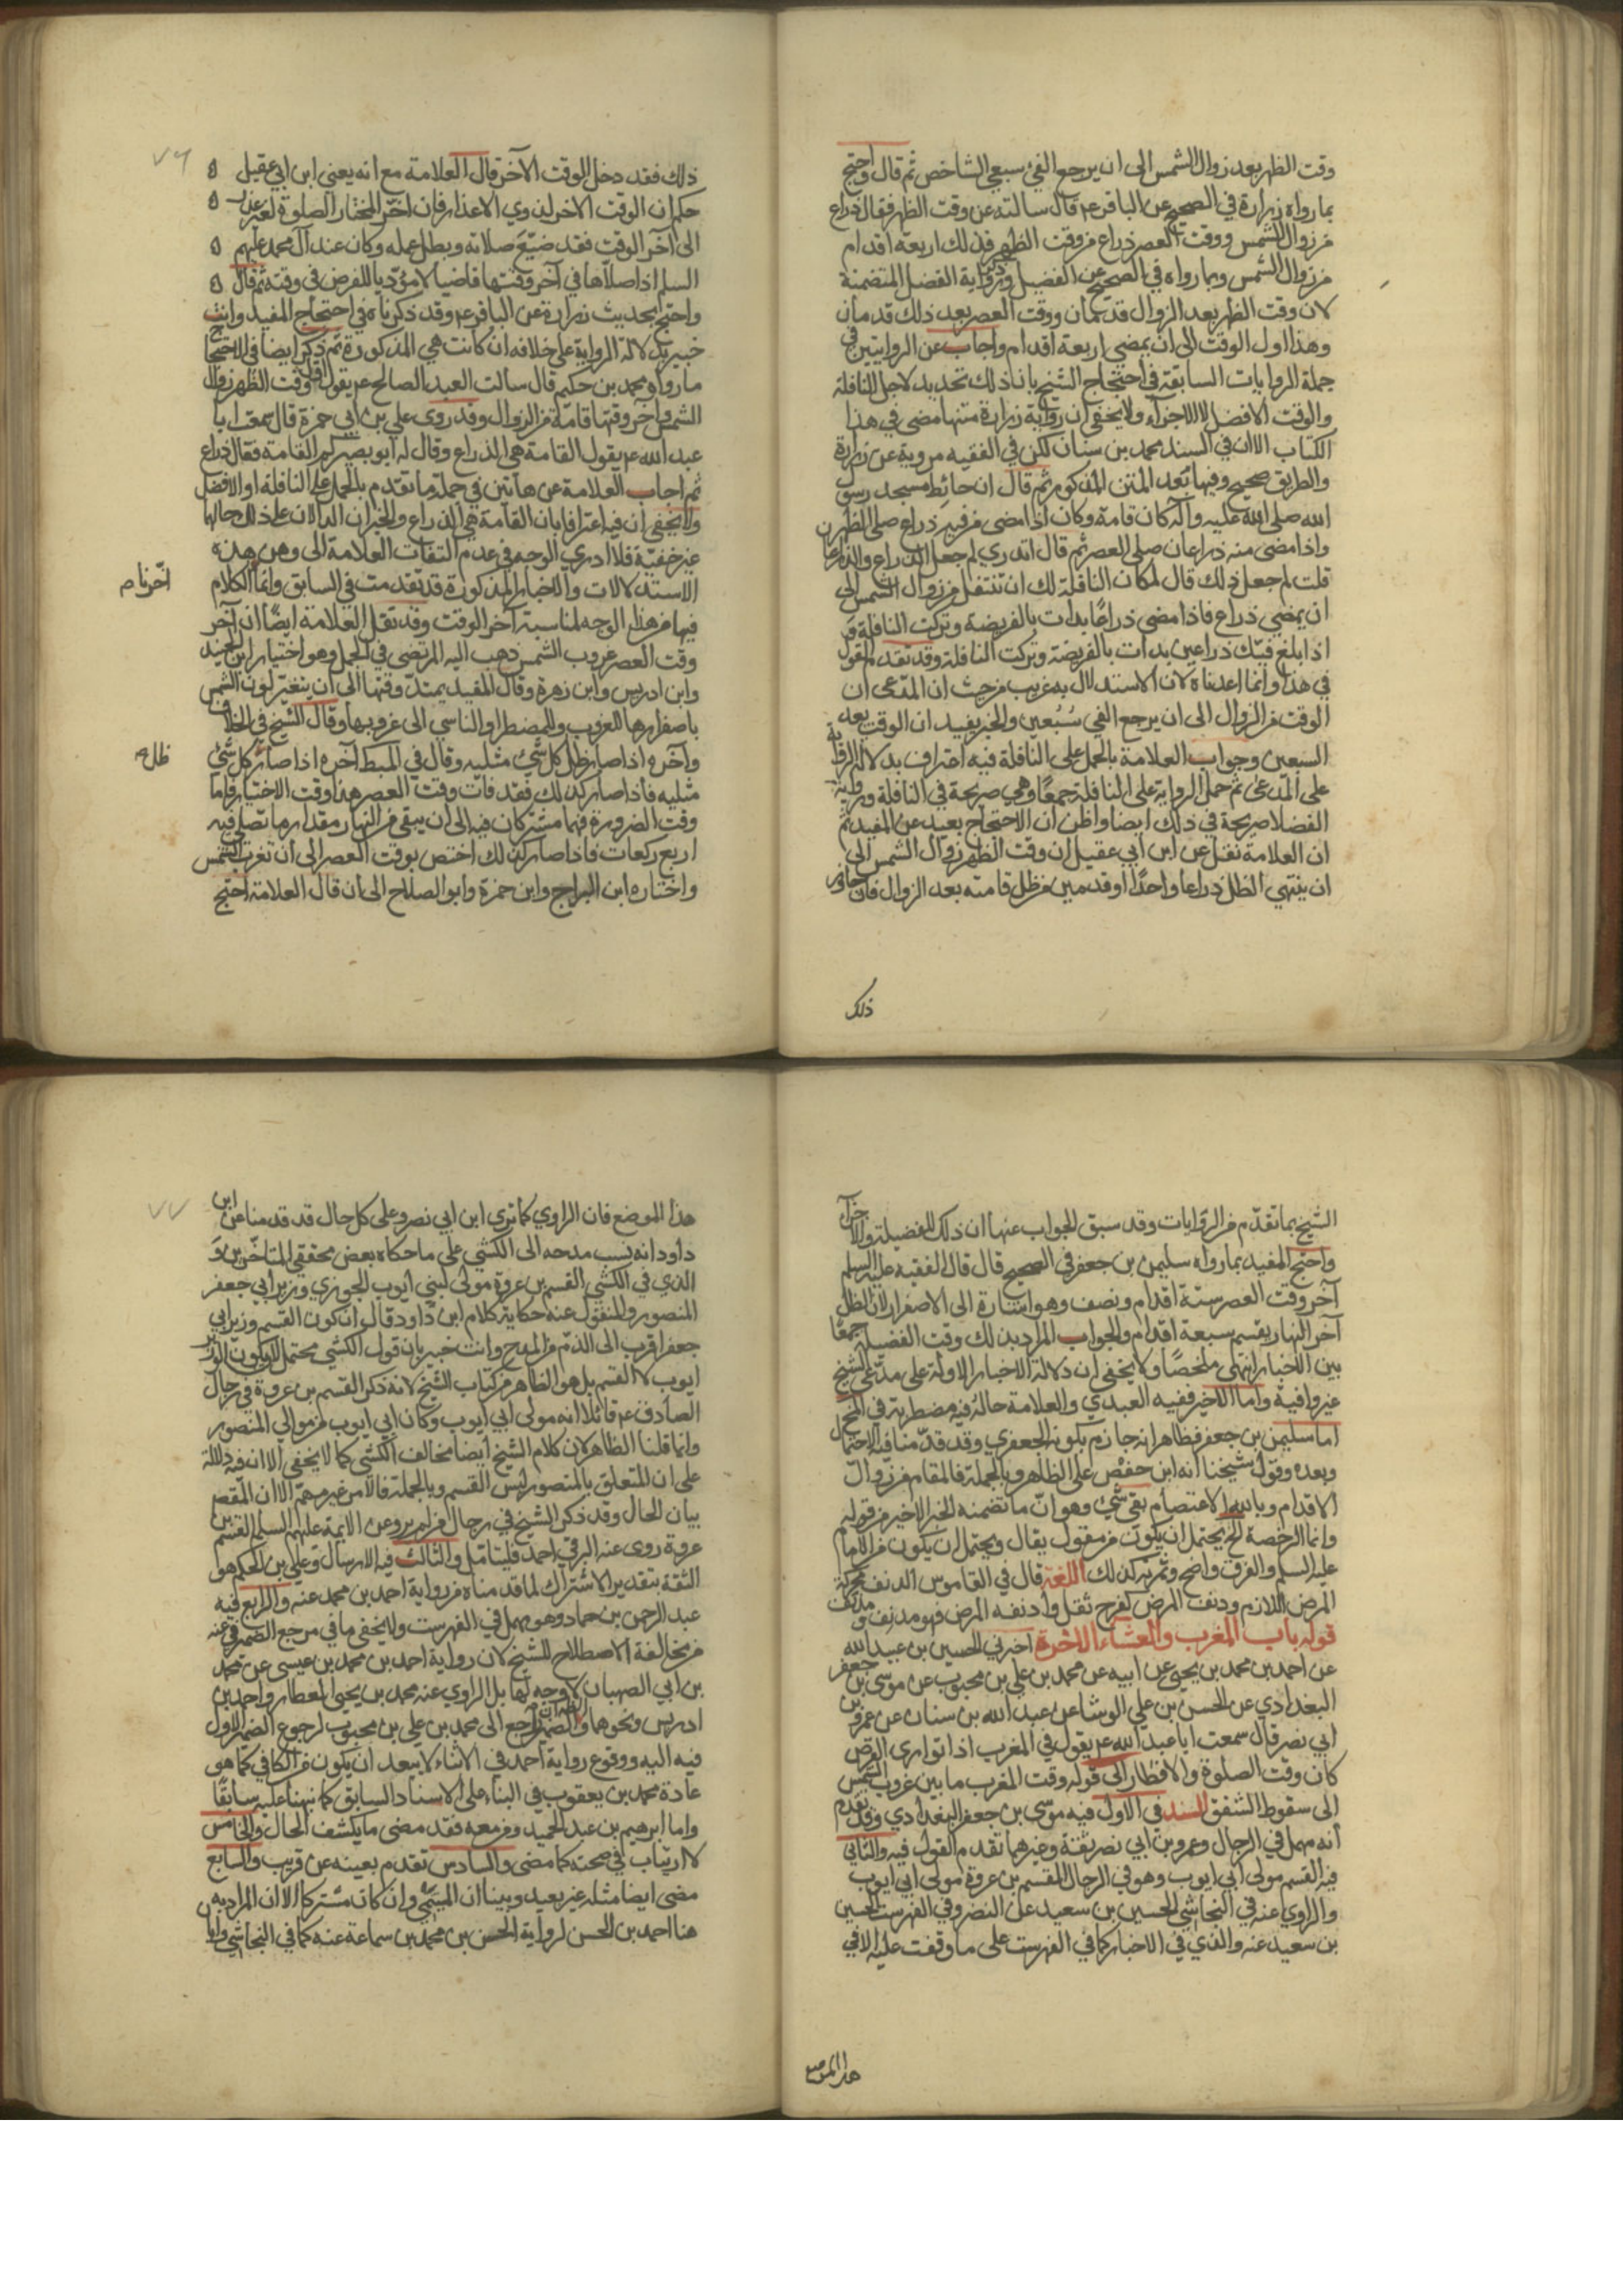 وقت الظهر بعد زوال الشمس الى ان يرجع الفئ سبعي الشاخص ثم قال واحتج
بما رواه زرارة في الصحيح عن الباقر ع م قال سالته عن وقت الظهر فقال ذراع
من زوال الشمس ووقت العصر ذراع من وقت الظهر فذلك اربعة اقدام
من زوال الشمس وبما رواه في الصحيح عن الفضيل وذكر رواية الفضل المتضمنة
لان وقت الظهر بعد الزوال قدمان ووقت العصر بعد ذلك قدمان
وهذا اول الوقت الى ان يمضي اربعة اقدام واجاب عن الروايتين في
جملة الروايات السابقة في احتجاج الشيخ بانا ذلك تحديد لاجل النافلة
والوقت الافضل لا للاجزاء ولا يخفى ان رواية زرارة متنها مضى في هذا
الكتاب الا ان في السند محمد بن سنان لكن في الفقيه مروية عن زرارة
والطريق صحيح وفيها بعد المتن المذكور ثم قال ان حائط مسجد رسول
الله صلى الله عليه وآله كان قامة وكان اذا مضى من فيه ذراع صلى الظهر
واذا مضى منه ذراعان صلى العصر ثم قال اتدري لم جعل الذراع والذراعان
قلت لم جعل ذلك قال لمكان النافلة لك ان تتنفل من زوال الشمس الى
ان يمضي ذراع فاذا مضى ذراعا بدات بالفريضة وتركت النافلة و
اذا بلغ فيئك ذراعين بدات بالفريضة وتركت النافلة وقد تقدم القول
في هذا وانما اعدناه لان الاستدلال به غريب من حيث ان المدعى ان
الوقت من الزوال الى ان يرجع الفي سبعين والخبر يفيد ان الوقت بعد
السبعين وجواب العلامة بالحمل على النافلة فيه اعتراف بدلالة الرواية
على المدعى ثم حمل الرواية على النافلة جمعا وهي صريحة في النافلة ورواية
الفضلا صريحة في ذلك ايضا واظن ان الاحتجاج بعيد عن المفيد ثم
ان العلامة نقل عن ابن ابي عقيل ان وقت الظهر زوال الشمس الى
ان ينتهي الظل ذراعا واحدا او قدمين من ظل قامته بعد الزوال فان جاوز
ذلك
٧٦
ذلك فقد دخل الوقت الآخر قال العلامة مع انه يعني ابن ابي عقيل
حكم ان الوقت الاخر لذوي الاعذار فان اخر المختار الصلوة لغير عذر
الى آخر الوقت فقد ضيع صلاته وبطل عمله وكان عند آل محمد عليهم
السلم اذا صلاها في آخر وقتها قاضيا لا مؤديا للفرض في وقته ثم قال
واحتج بحديث زرارة عن الباقر ع م وقد ذكرناه في احتجاج المفيد وانت
خبير بدلالة الرواية على خلافه ان كانت هي المذكورة ثم ذكر ايضا في الاحتجاج
ما رواه محمد بن حكيم قال سالت العبد الصالح ع م يقول اول وقت الظهر زوال
الشمس وآخر وقتها قامة من الزوال وقد روى علي بن ابي حمزة قال سمعت ابا
عبد الله ع م يقول القامة هي الذراع وقال له ابو بصير كم القامة فقال ذراع
ثم اجاب العلامة عن هاتين في جملة ما تقدم بالحمل على النافلة او الافضل
ولا يخفى ان فيه اعترافا بان القامة هي الذراع والخبران الدالان على ذلك حالها
غير خفية فلا ادري الوجه في عدم التفات العلامة الى وهن هذه
الاستدلالات والاخبار المذكورة قد تقدمت في السابق وانما الكلام
اخرنا ص
فيها من هذا الوجه لمناسبة آخر الوقت وقد نقل العلامة ايضا ان آخر
وقت العصر غروب الشمس ذهب اليه المرتضى في الجمل وهو اختيار ابن الجنيد
وابن ادريس وابن زهرة وقال المفيد يمتد وقتها الى ان يتغير لون الشمس
باصفرارها للغروب وللمضطر والناسي الى غروبها وقال الشيخ في الخلاف
وآخره اذا صار ظل كل شئ مثليه وقال في المبسط آخره اذا صار كل شئ
ظل ح
مثليه فاذا صار كذلك فقد فات وقت العصر هذا وقت الاختيار فاما
وقت الضرورة فهما مشتركان فيه الى ان يبقى من النهار مقدار ما تصلى فيه
اربع ركعات فاذا صار كذلك اختص بوقت العصر الى ان تغرب الشمس
واختاره ابن البراج وابن حمزة وابو الصلاح الى ان قال العلامة احتج
الشيخ بما تقدم من الروايات وقد سبق الجواب عنها ان ذلك للفضيلة والاجزاء
واحتج المفيد بما رواه سليمن بن جعفر في الصحيح قال قال الفقيه عليه السلم
آخر وقت العصر ستة اقدام ونصف وهو اشارة الى الاصفرار لان الظل
آخر النهار يقسم سبعة اقدام والجواب المراد بذلك وقت الفضيلة جمعا
بين الاخبار انتهى ملخصا ولا يخفى ان دلالة الاخبار الاولة على مدعى الشيخ
غير وافية واما الاخير ففيه العبدي والعلامة حاله فيه مضطربة في المخ
اما سليمن بن جعفر فظاهر انه جازم بكونه الجعفري وقد قدمنا فيه الاحتمال
وبعده وقول شيخنا انه ابن حفص على الظاهر وبالجملة فالمقام من زوال
الاقدام وبالله الاعتصام بقى شئ وهو ان ما تضمنه الخبر الاخير من قوله
وانما الرخصة الخ يحتمل ان يكون من مقول يقال ويحتمل ان يكون من الامام
عليه السلم والفرق واضح وثمرته كذلك اللغة قال في القاموس الدنف محركة
المرض اللازم ودنف المرض كفرح ثقل وادنفه المرض فهو مدنف و مدنف
قوله باب المغرب والعشاء الاخرة اخبرني الحسين بن عبيد الله
عن احمد بن محمد بن يحيى عن ابيه عن محمد بن علي بن محبوب عن موسى بن جعفر
البغدادي عن الحسن بن علي الوشا عن عبد الله بن سنان عن عمرو بن
ابي نصر قال سمعت ابا عبد الله ع م يقول في المغرب اذا توارى القرص
كان وقت الصلوة والافطار الى قوله وقت المغرب ما بين غروب الشمس
الى سقوط الشفق السند في الاول فيه موسى بن جعفر البغدادي وقد تقدم
انه مهمل في الرجال وعمرو بن ابي نصر ثقة وغيرهما تقدم القول فيه والثاني
فيه القسم مولى ابي ايوب وهو في الرجال القسم بن عروة مولى ابي ايوب
والراوي عنه في النجاشي الحسين بن سعيد عن النضر وفي الفهرست الحسين
بن سعيد عنه والذي في الاخبار كما في الفهرست على ما وقفت عليه الا في
هذا الموضع
٧٧
هذا الموضع فان الراوي كما ترى ابن ابي نصر وعلى كل حال قد قدمنا عن ابن
داود انه نسب مدحه الى الكشي على ما حكاه بعض محققي المتاخرين و
الذي في الكشي القسم بن عروة مولى لبني ايوب الجوزي وزير ابي جعفر
المنصور والمنقول عنه حكاية كلام ابن داود قال ان كون القسم وزير ابي
جعفر اقرب الى الذم من المدح وانت خبير بان قول الكشي محتمل لكون الوزير
ايوب لا القسم بل هو الظاهر من كتاب الشيخ لانه ذكر القسم بن عروة في رجال
الصادق ع م قائلا انه مولى ابي ايوب وكان ابي ايوب من موالي المنصور
وانما قلنا الظاهر لان كلام الشيخ ايضا مخالف الكشي كما لا يخفى الا ان فيه دلالة
على ان المتعلق بالمنصور ليس القسم وبالجملة فالامر غير مهم الا ان المقصر
بيان الحال وقد ذكر الشيخ في رجال من لم يرو عن الايمة عليهم السلم القسم بن
عروة روى عنه البرقي احمد فليتامل والثالث فيه الارسال وعلي بن الحكم هو
الثقة بتقدير الاشتراك لما قدمناه من رواية احمد بن محمد عنه والرابع فيه
عبد الرحمن بن حماد وهو مهمل في الفهرست ولا يخفى ما في مرجع الضمير في عنه
من مخالفة الاصطلاح للشيخ لان رواية احمد بن محمد بن عيسى عن محمد
بن ابي الصهبان لا وجه لها بل الراوي عنه محمد بن يحيى العطار واحمد بن
ادريس ونحوهما والظاهر ان الضمير راجع الى محمد بن علي بن محبوب لرجوع الضمير الاول
فيه اليه ووقوع رواية احمد في الاثناء لا يبعد ان يكون من الكافي كما هو
عادة محمد بن يعقوب في البناء على الاسناد السابق كما نبهنا عليه سابقا
واما ابرهيم بن عبد الحميد ومن معه فقد مضى ما يكشف الحال والخامس
لا ارتياب في صحته كما مضى والسادس تقدم بعينه عن قريب والسابع
مضى ايضا مثله غير بعيد وبينا ان الميثمي وان كان مشتركا الا ان المراد به
هنا احمد بن الحسن لرواية الحسن بن محمد بن سماعة عنه كما في النجاشي واما